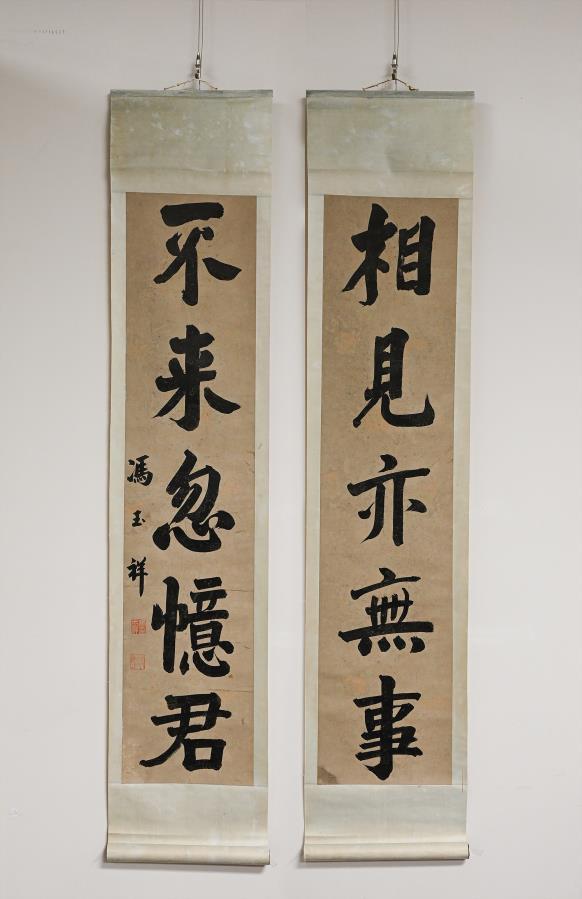 相見亦無事
不来忽憶君
馮玉祥